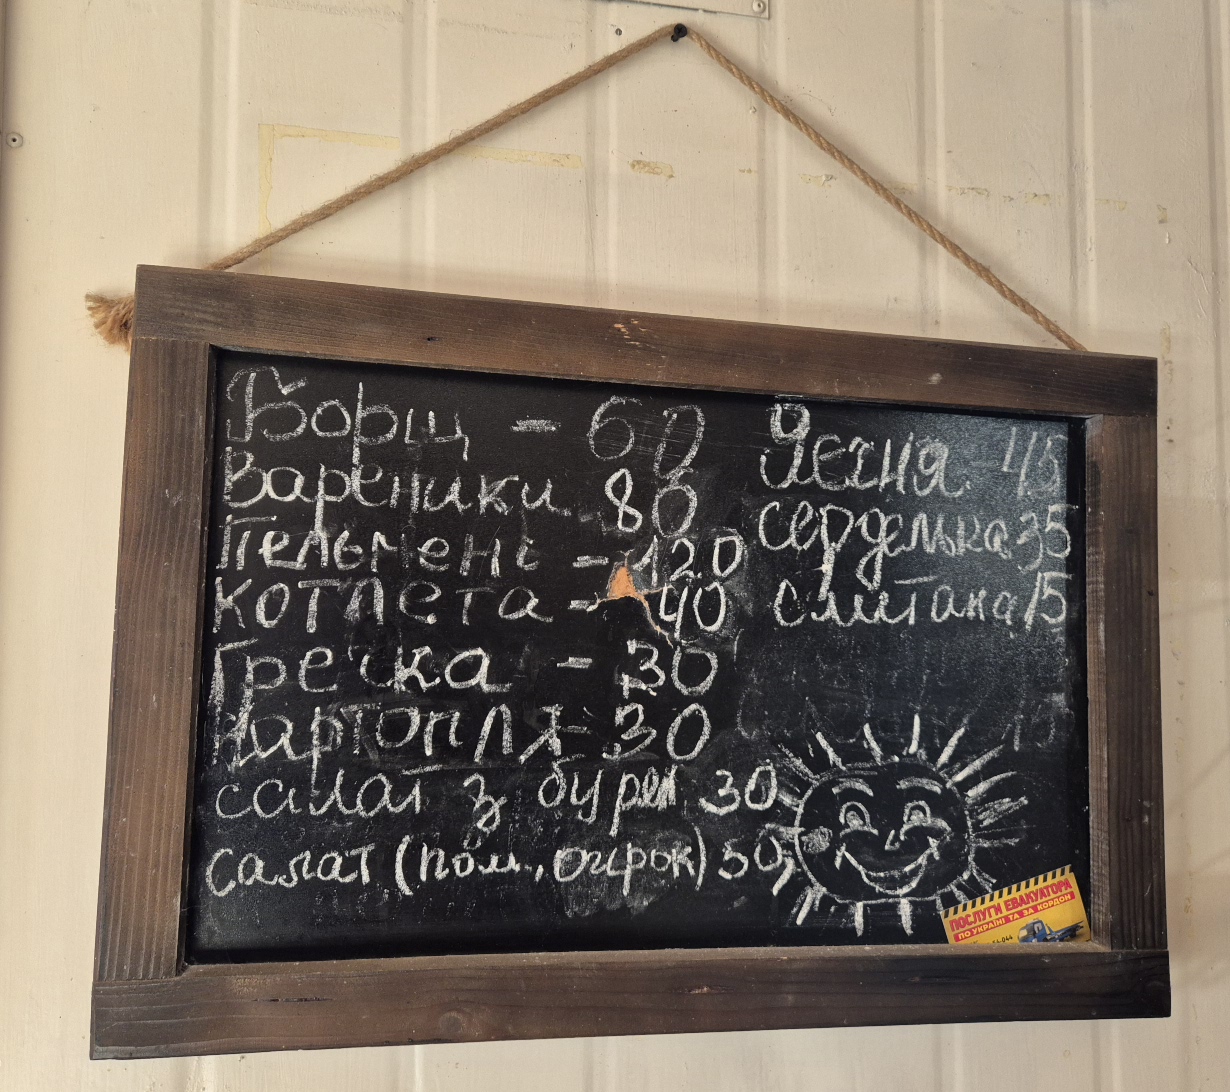 Борщ - 60
Вареники 80
Пельмені - 120
котлета - 40
Гречка - 30
Картопля - 30
салат з буря 30
салат (пом., огірок) 50
Яєчня - 45
серделька 35
сметана 15
ПОСЛУГИ ЕВАКУАТОРА
ПО УКРАЇНІ ТА ЗА КОРДОН